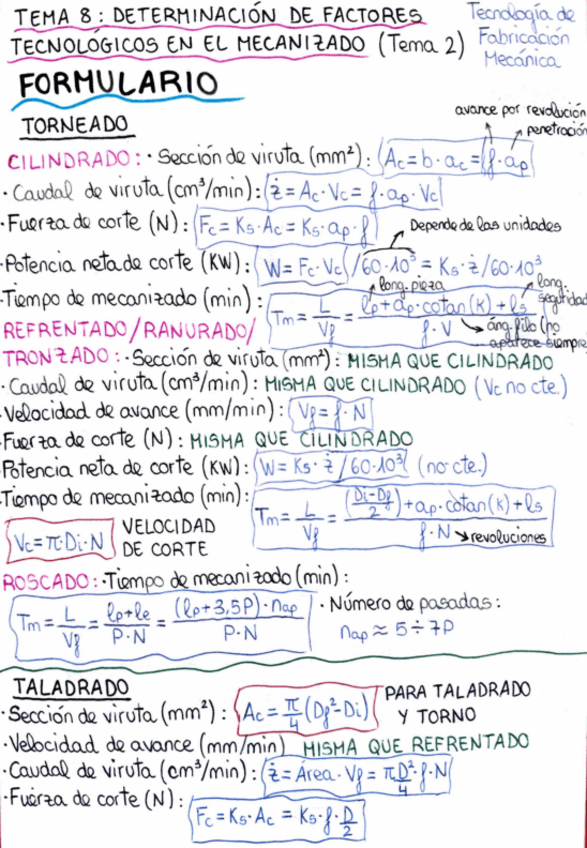 TEMA 8: DETERMINACIÓN DE FACTORES
TECNOLÓGICOS EN EL MECANIZADO (Tema 2)
Tecnología de
Fabricación
Mecánica
FORMULARIO
TORNEADO
avance por revolución
penetración
CILINDRADO: · Sección de viruta (mm²): Ac = b · ac = f · ap
· Caudal de viruta (cm³/min): ż = Ac · Vc = f · ap · Vc
· Fuerza de corte (N): Fc = Ks · Ac = Ks · ap · f
Depende de las unidades
· Potencia neta de corte (KW): W = Fc · Vc / 60·10³ = Ks · ż / 60·10³
long. pieza
long. seguridad
· Tiempo de mecanizado (min): Tm = L / Vf = lp + ap · cotan(K) + ls / f · V
áng. filo (no aparece siempre
REFRENTADO/RANURADO/
TRONZADO: · Sección de viruta (mm²): MISMA QUE CILINDRADO
· Caudal de viruta (cm³/min): MISMA QUE CILINDRADO (Vc no cte.)
· Velocidad de avance (mm/min): Vf = f · N
· Fuerza de corte (N): MISMA QUE CILINDRADO
· Potencia neta de corte (KW): W = Ks · ż / 60·10³ (no cte.)
· Tiempo de mecanizado (min): Tm = L / Vf = (Di-Df / 2) + ap · cotan(K) + ls / f · N
revoluciones
Vc = π·Di·N
VELOCIDAD
DE CORTE
ROSCADO: · Tiempo de mecanizado (min):
Tm = L / Vf = lp + le / P·N = (lp + 3,5P) · nap / P·N
· Número de pasadas:
nap ≈ 5 ÷ 7P
TALADRADO
· Sección de viruta (mm²): Ac = π/4 (Df² - Di)
PARA TALADRADO
Y TORNO
· Velocidad de avance (mm/min) MISMA QUE REFRENTADO
· Caudal de viruta (cm³/min): ż = Área · Vf = πD²/4 · f · N
· Fuerza de corte (N):
Fc = Ks · Ac = Ks · f · D/2